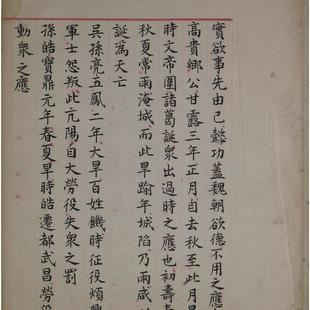 實欲事先由己懿功蓋魏朝欲德不用之應
高貴鄉公甘露三年正月自去秋至此月旱
時文帝圍諸葛誕衆出過時之應也初壽春
秋夏常雨淹城而此旱踰年城陷乃雨咸以
誕爲天亡
吳孫亮五鳳二年大旱百姓饑時征役煩興
軍士怨叛此亢陽自大勞役失衆之罰
孫皓寶鼎元年春夏旱時皓遷都武昌勞役
動衆之應